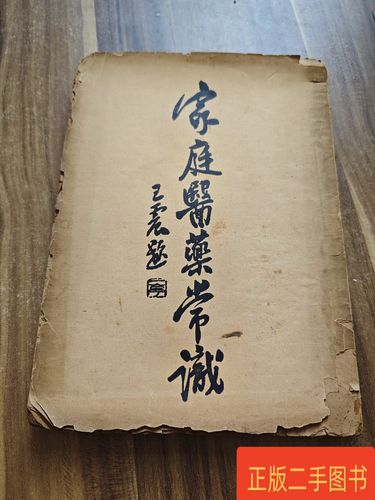 家庭醫藥常識
王震題
正版二手图书